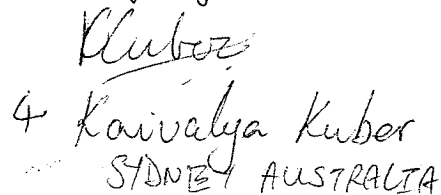 4 Kaivalya Kuber
SYDNEY AUSTRALIA